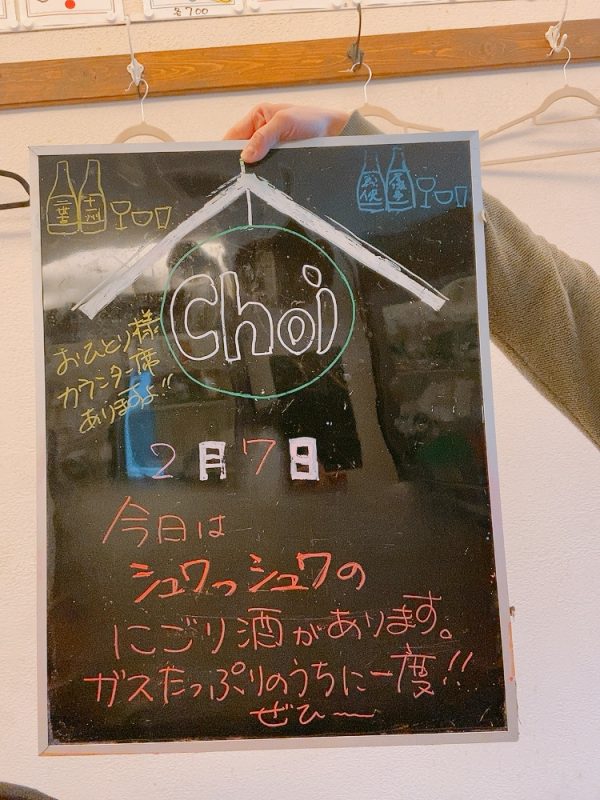 ¥700
二世古
十一州
Choi
おひとり様
カウンター席
ありますよ!!
2月7日
今日は
シュワっシュワの
にごり酒があります。
ガスたっぷりのうちに一度!!
ぜひー